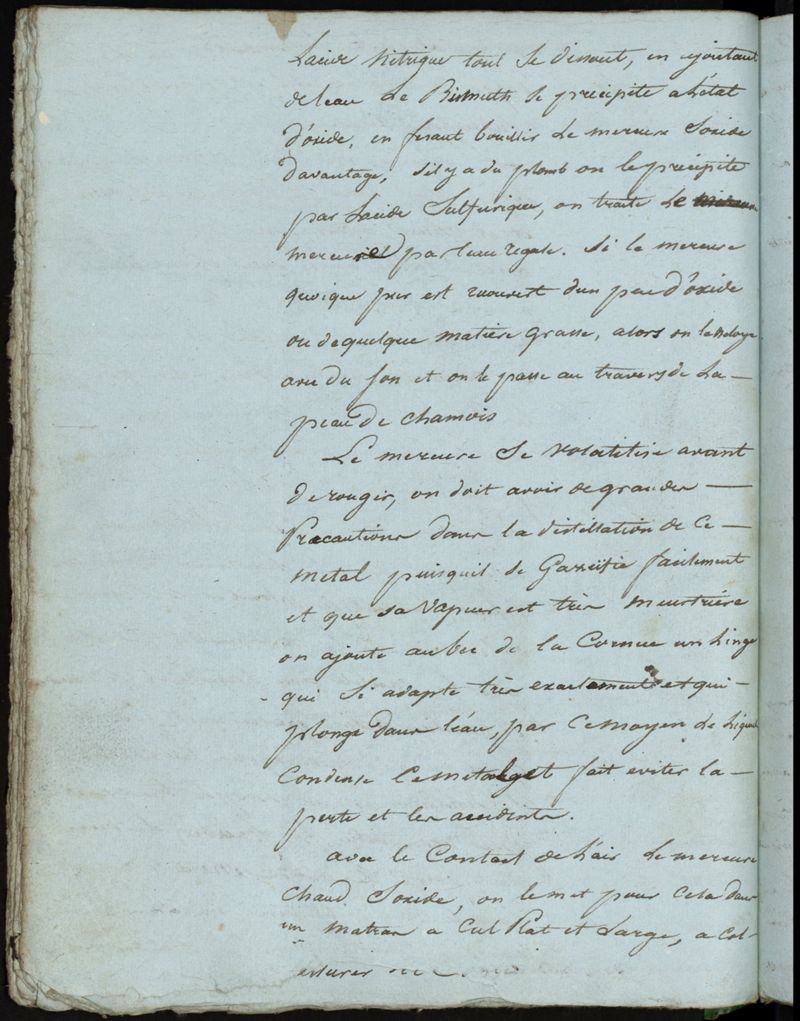 Lacide Nitrique tout se dissout, en ajoutant
de leau le Bismuth se precipite a letat
d'oxide, en fesant bouillir le mercure Soxide
davantage, sil y a du plomb on le precipite
par Lacide Sulfurique, on traite le
mercuriel par leau regale. Si le mercure
quoique pur est recouvert dun peu d'oxide
ou de quelque matière grasse, alors on le netoye
avec du son et on le passe au travers de La —
peau de chamois
Le mercure se volatilise avant
de rougir, on doit avoir de grandes —
Précautions dans la distillation de Ce —
metal puisquil se Gazeifie facilement
et que sa vapeur est très meurtrière
on ajoute au bec de la Cornue un Linge
qui Si adapte très exactement et qui —
plonge dans l'éau, par Ce moyen le liquide
Condense Ce metal et fait eviter la —
perte et les accidents.
avec le Contact de L'air Le mercure
chaud Soxide, on le met pour Cela dans
un matras a Cul Plat et Large, a Col